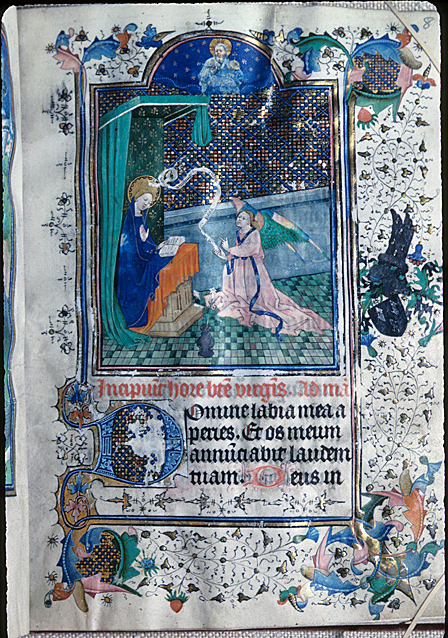 8
Incipiũt hore bte virgis. Ad ma
Domine labia mea a
peries. Et os meum
annũciabit laudem
tuam. Deus in